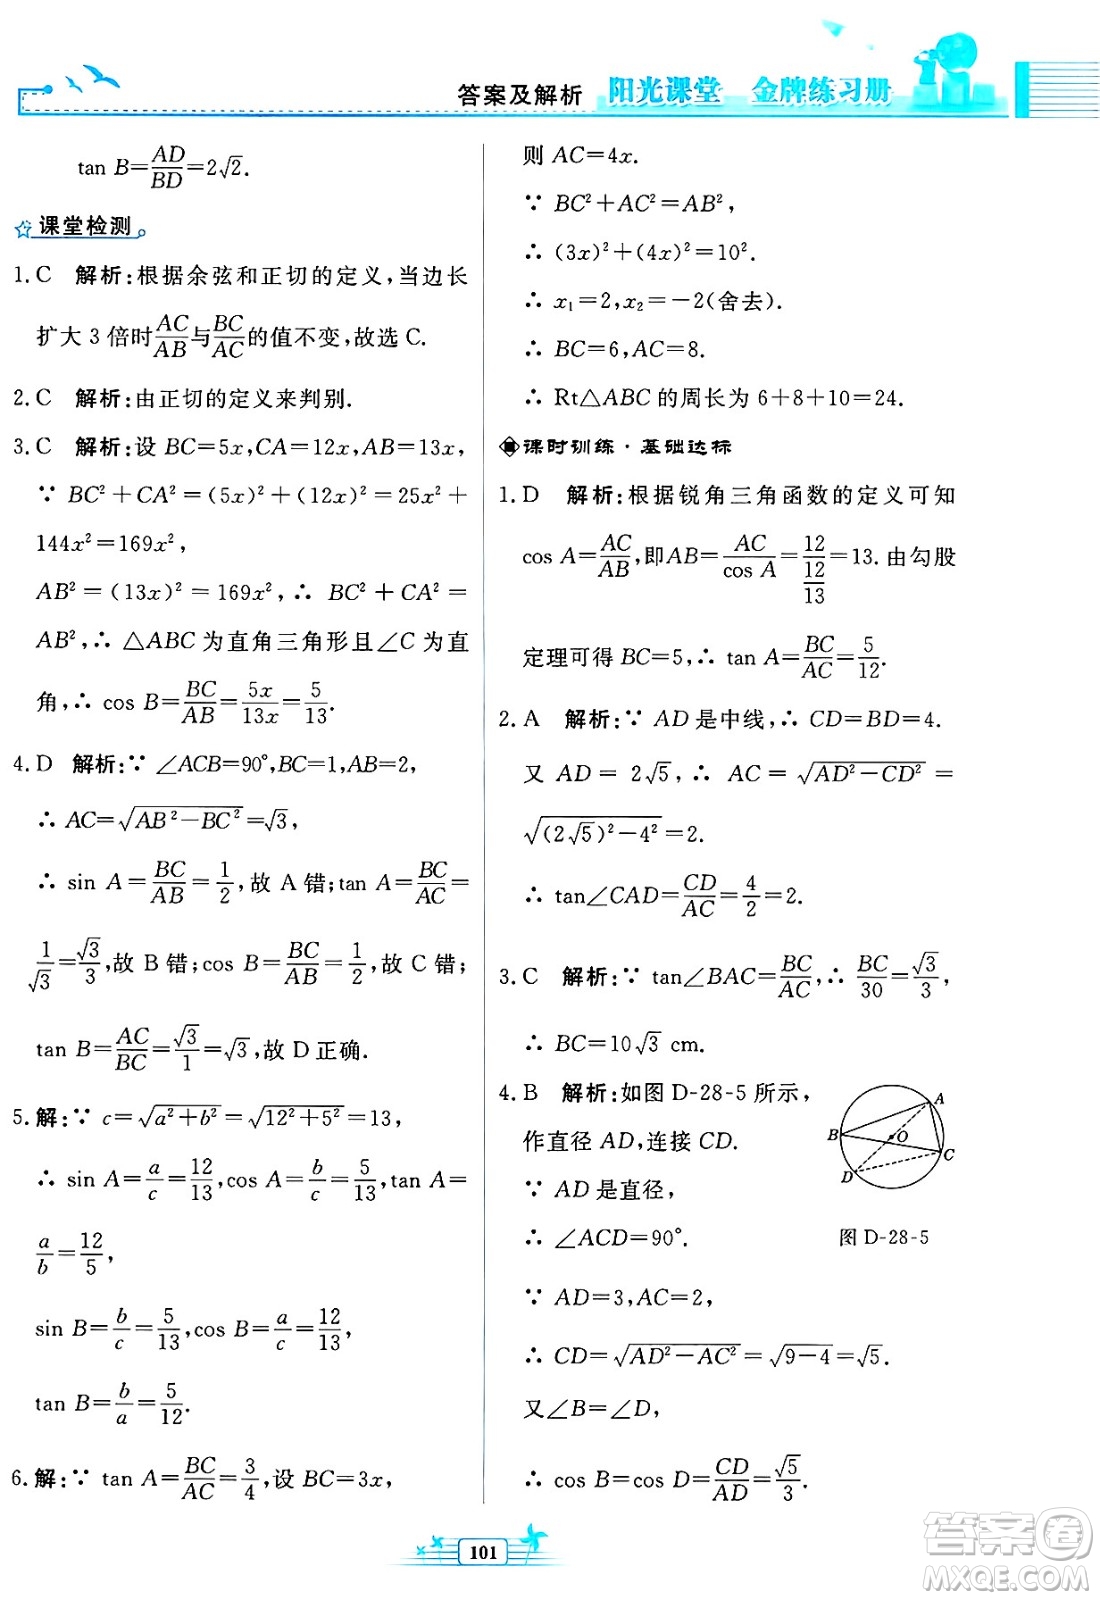 答案及解析 阳光课堂 金牌练习册
tan B=AD/BD=2√2.
课堂检测
1. C 解析:根据余弦和正切的定义,当边长
扩大 3 倍时AC/AB与BC/AC的值不变,故选 C.
2. C 解析:由正切的定义来判别.
3. C 解析:设 BC=5x,CA=12x,AB=13x,
∵ BC²+CA²=(5x)²+(12x)²=25x²+
144x²=169x²,
AB²=(13x)²=169x²,∴ BC²+CA²=
AB²,∴ △ABC 为直角三角形且∠C 为直
角,∴ cos B=BC/AB=5x/13x=5/13.
4. D 解析:∵ ∠ACB=90°,BC=1,AB=2,
∴ AC=√(AB²-BC²)=√3,
∴ sin A=BC/AB=1/2,故 A 错;tan A=BC/AC=
1/√3=√3/3,故 B 错;cos B=BC/AB=1/2,故 C 错;
tan B=AC/BC=√3/1=√3,故 D 正确.
5. 解:∵ c=√(a²+b²)=√(12²+5²)=13,
∴ sin A=a/c=12/13,cos A=b/c=5/13,tan A=
a/b=12/5,
sin B=b/c=5/13,cos B=a/c=12/13,
tan B=b/a=5/12.
6. 解:∵ tan A=BC/AC=3/4,设 BC=3x,
则 AC=4x.
∵ BC²+AC²=AB²,
∴ (3x)²+(4x)²=10².
∴ x₁=2,x₂=-2(舍去).
∴ BC=6,AC=8.
∴ Rt△ABC 的周长为 6+8+10=24.
课时训练·基础达标
1. D 解析:根据锐角三角函数的定义可知
cos A=AC/AB,即AB=AC/cos A=12/(12/13)=13.由勾股
定理可得 BC=5,∴ tan A=BC/AC=5/12.
2. A 解析:∵ AD 是中线,∴ CD=BD=4.
又 AD=2√5,∴ AC=√(AD²-CD²)=
√((2√5)²-4²)=2.
∴ tan∠CAD=CD/AC=4/2=2.
3. C 解析:∵ tan∠BAC=BC/AC,∴ BC/30=√3/3,
∴ BC=10√3 cm.
4. B 解析:如图 D-28-5 所示,
作直径 AD,连接 CD.
∵ AD 是直径,
∴ ∠ACD=90°.
∵ AD=3,AC=2,
∴ CD=√(AD²-AC²)=√(9-4)=√5.
又∠B=∠D,
∴ cos B=cos D=CD/AD=√5/3.
A
B
O
C
D
图 D-28-5
101
答案卷
MXQE.COM